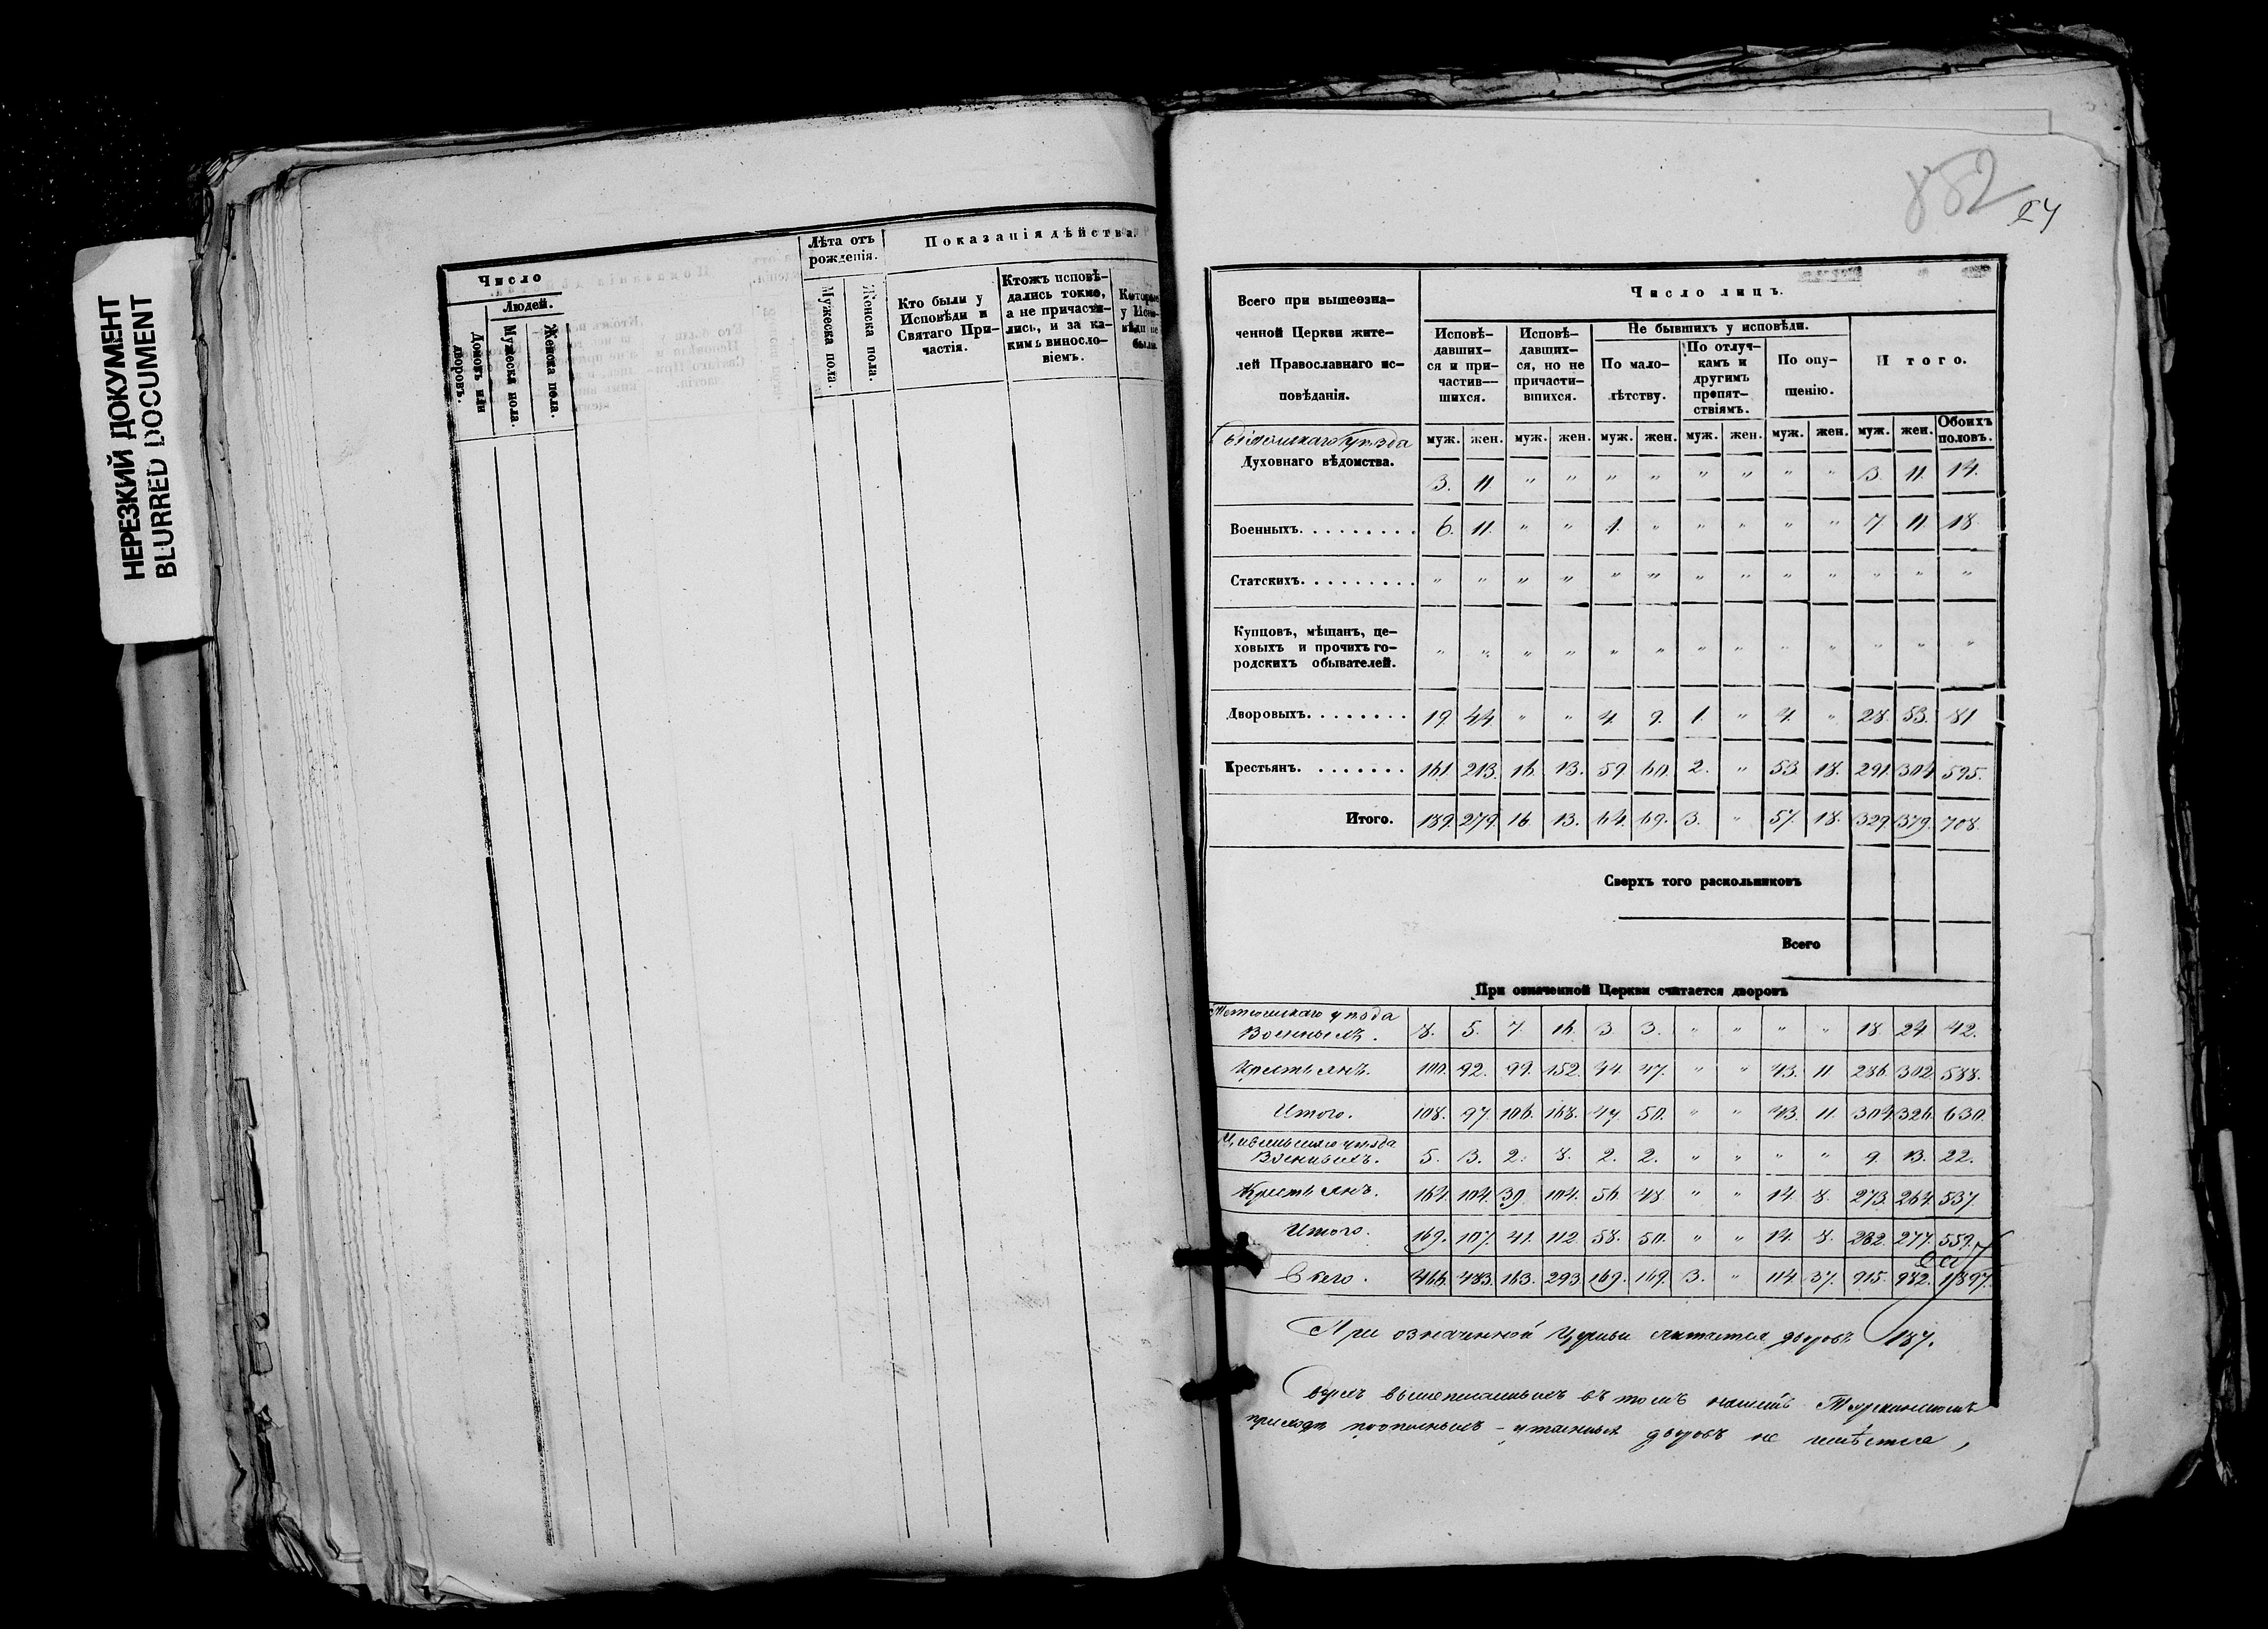 НЕРЕЗКИЙ ДОКУМЕНТ
BLURRED DOCUMENT
Число
Людей.
Домовъ или дворовъ.
Мужеска пола.
Женска пола.
Лѣта отъ рожденія.
Мужеска пола.
Женска пола.
Показанія дѣйства.
Кто были у Исповѣди и Святаго Причастія.
Ктожъ исповѣдались токмо, а не причастились, и за какимъ винословіемъ.
Которые у Исповѣди не были.
882
24
Всего при вышеозначенной Церкви жителей Православнаго исповѣданія.
Число лицъ.
Исповѣдавшихся и причастившихся.
Исповѣдавшихся, но не причастившихся.
Не бывшихъ у исповѣди.
По малолѣтству.
По отлучкамъ и другимъ препятствіямъ.
По опущенію.
Итого.
муж. жен. муж. жен. муж. жен. муж. жен. муж. жен. муж. жен. Обоихъ половъ.
уѣзда
Духовнаго вѣдомства. 3. 11 " " " " " " " " 3. 11. 14.
Военныхъ. 6. 11. " " 1. " " " " " 7. 11. 18.
Статскихъ. " " " " " " " " " " " " "
Купцовъ, мѣщанъ, цеховыхъ и прочихъ городскихъ обывателей. " " " " " " " " " " " " "
Дворовыхъ. 19 44 " " 4. 9. 1. " 4. " 28. 53. 81
Крестьянъ. 161. 213. 16. 13. 59 60. 2. " 53. 18. 291. 304 595.
Итого. 189. 279. 16 13. 64. 69. 3. " 57. 18. 329. 379. 708.
Сверхъ того раскольниковъ
Всего
При означенной Церкви считается дворовъ
Тетюшскаго уѣзда
Военныхъ. 8. 5. 7. 16. 3 3. " " " " 18. 24 42.
Крестьянъ. 100. 92. 99. 152. 44. 47. " " 43. 11 286. 302. 588.
Итого. 108. 97. 106. 168. 47. 50. " " 43. 11. 304. 326. 630.
Цивильскаго уѣзда
Военныхъ. 5. 3. 2. 8. 2. 2. " " " " 9. 13. 22.
Крестьянъ. 164. 104. 39. 104. 56. 48. " " 14 8. 273. 264. 537.
Итого. 169. 107. 41. 112 58. 50. " " 14. 8. 282. 277. 559.
Всего. 466. 483. 163. 293. 169. 169. 3. " 114 37. 915. 982. 1897.
При означенной Церкви считается дворовъ 187.
въ томъ
дворовъ не имѣется,